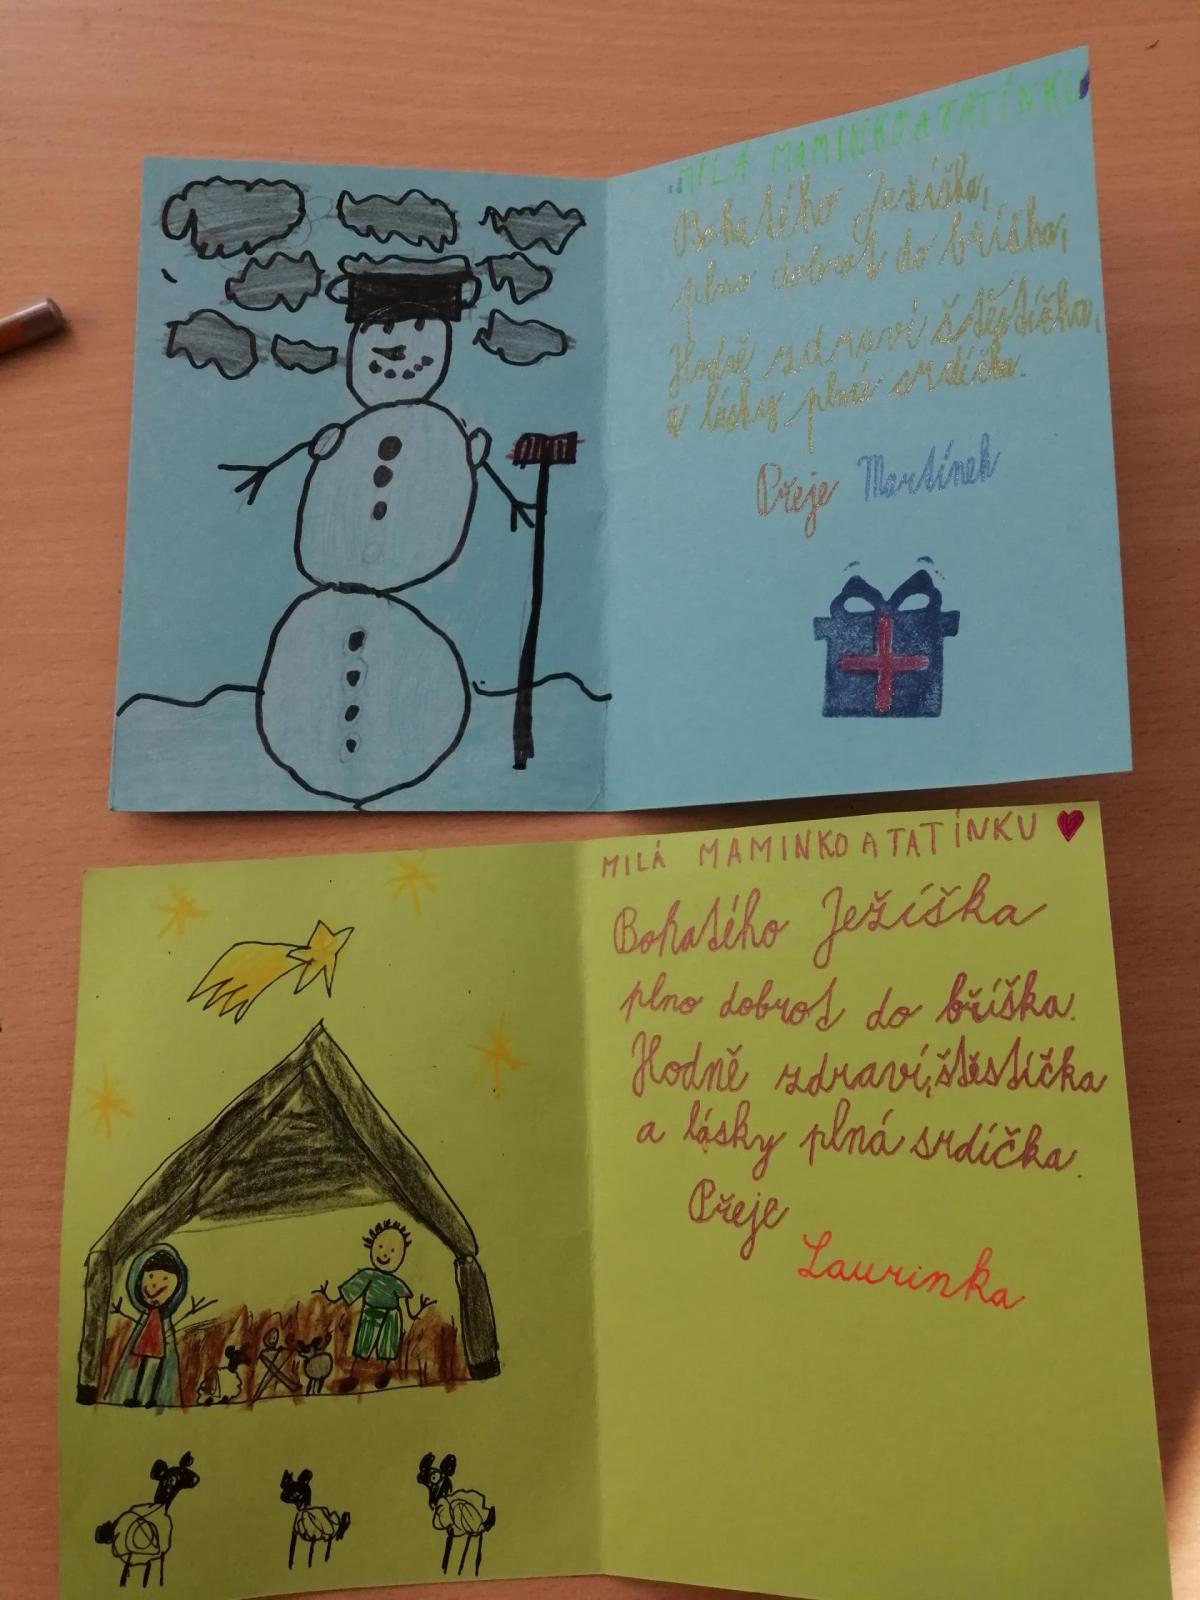 MILÁ MAMINKO A TATÍNKU
Bohatého Ježíška,
plno dobrot do bříška,
Hodně zdraví štěstíčka,
a lásky plné srdíčka.
Přeje Martínek
MILÁ MAMINKO A TATÍNKU
Bohatého Ježíška
plno dobrot do bříška.
Hodně zdraví, štěstíčka
a lásky plná srdíčka.
Přeje
Laurinka